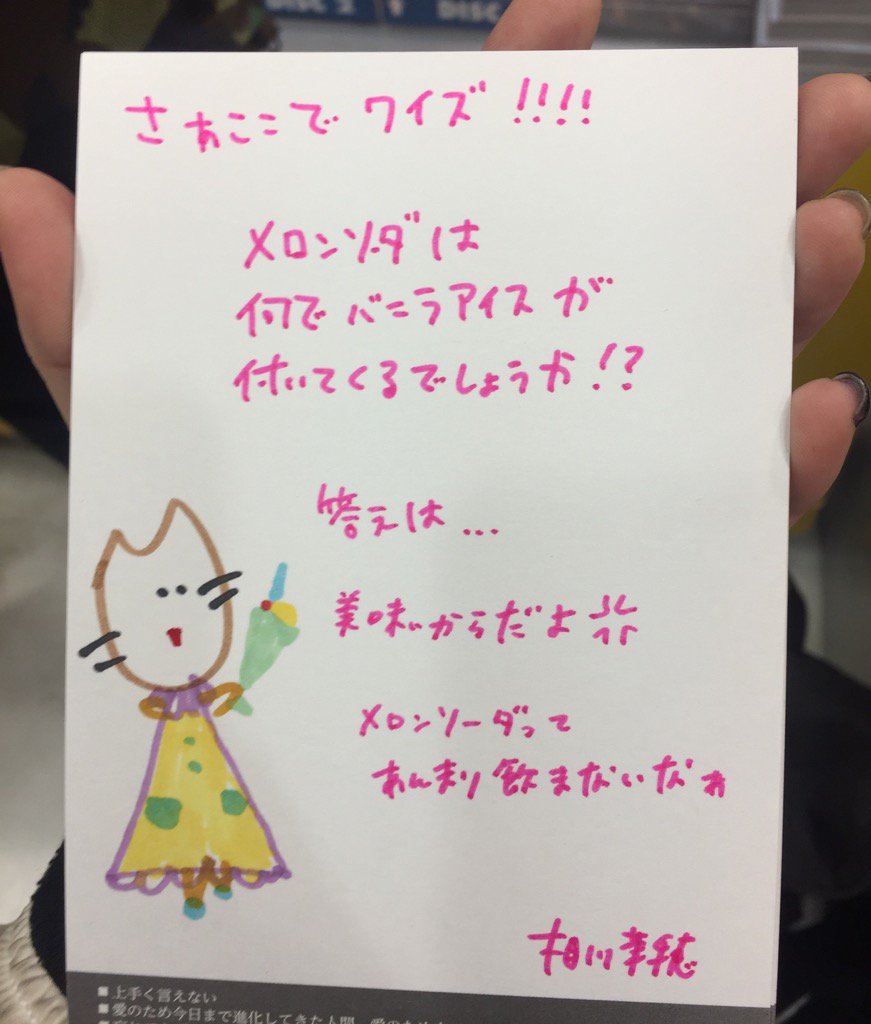 DISC 2 ↑ DISC
さぁここで クイズ !!!!
メロンソーダは
何でバニラアイスが
付いてくるでしょうか!?
答えは...
美味いからだよ
メロンソーダって
あんまり飲まないなぁ
相川茉穂
■上手く言えない
■愛のため今日まで進化してきた人間 愛のため